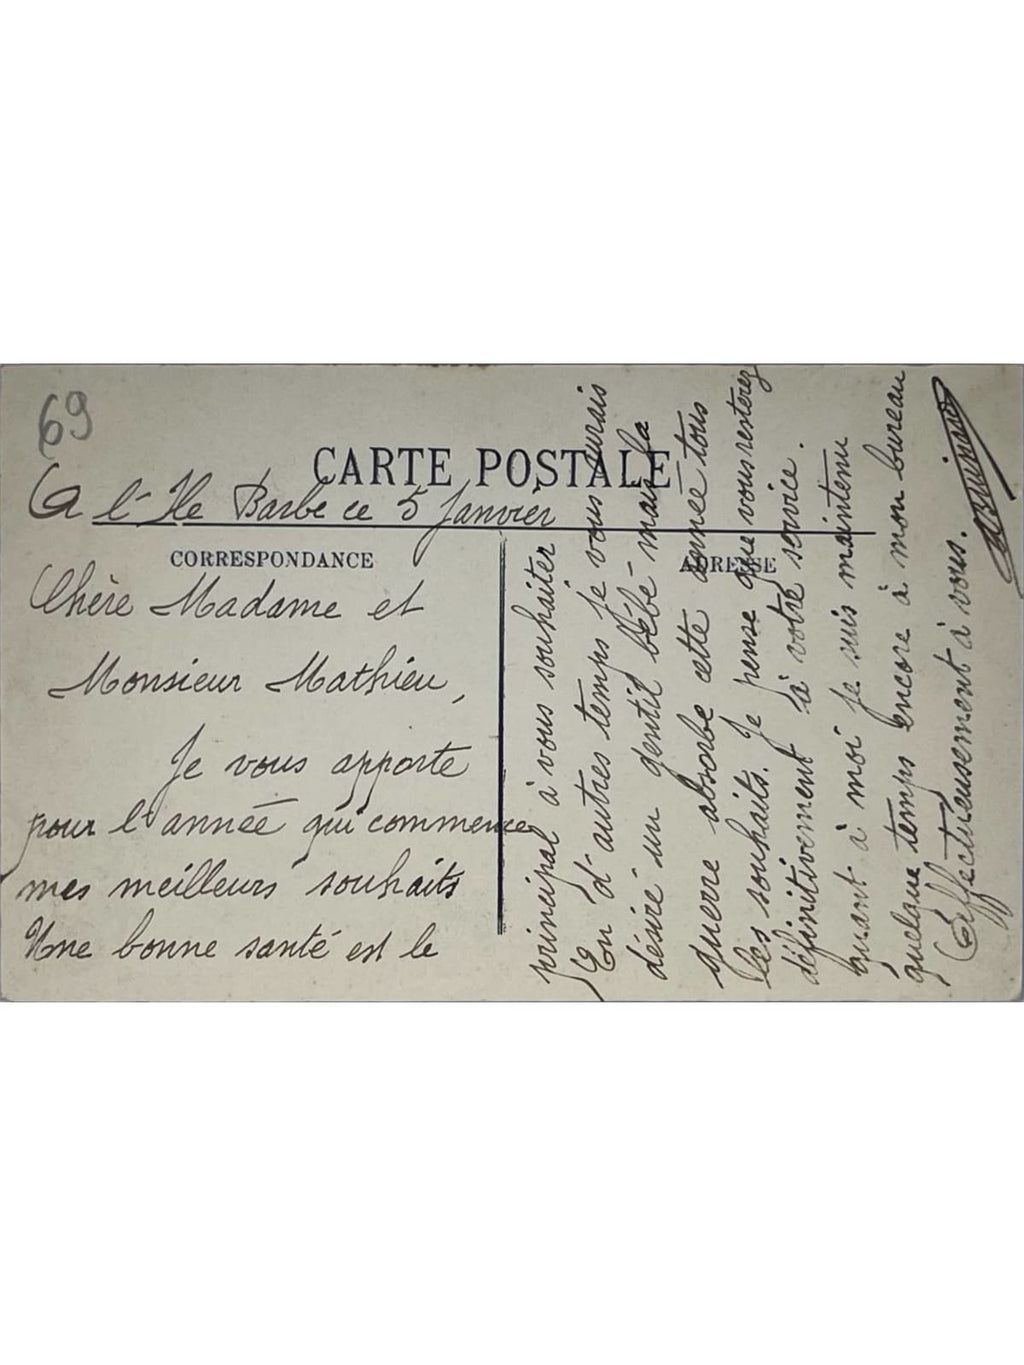 69
CARTE POSTALE
A l'Ile Barbe ce 5 Janvier
CORRESPONDANCE
ADRESSE
Chère Madame et
Monsieur Mathieu,
Je vous apporte
pour l'année qui commence
mes meilleurs souhaits
Une bonne santé est le
principal à vous souhaiter
En d'autres temps je vous aurais
désiré un gentil bébé mais la
guerre absorbe cette année tous
les souhaits. Je pense que vous resterez
définitivement à votre service.
quant à moi je suis maintenu
quelque temps encore à mon bureau
Affectueusement à vous.